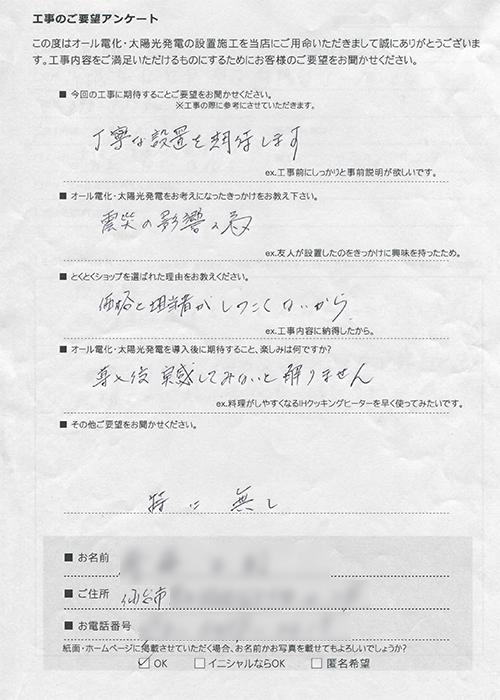 工事のご要望アンケート
この度はオール電化・太陽光発電の設置施工を当店にご用命いただきまして誠にありがとうございま
す。工事内容をご満足いただけるものにするためにお客様のご要望をお聞かせください。
■ 今回の工事に期待することご要望をお聞かせください。
※工事の際に参考にさせていただきます。
丁寧な設置を期待します
ex.工事前にしっかりと事前説明が欲しいです。
■ オール電化・太陽光発電をお考えになったきっかけをお教え下さい。
震災の影響の為
ex.友人が設置したのをきっかけに興味を持ったため。
■ とくとくショップを選ばれた理由をお教えください。
価格と担当者がしつこくないから
ex.工事内容に納得したから。
■ オール電化・太陽光発電を導入後に期待すること、楽しみは何ですか?
導入後実感してみないと解りません
ex.料理がしやすくなるIHクッキングヒーターを早く使ってみたいです。
■ その他ご要望をお聞かせください。
特に無し
■ お名前
■ ご住所 仙台市
■ お電話番号
紙面・ホームページに掲載させていただく場合、お名前かお写真を載せてもよろしいでしょうか?
☑ OK □ イニシャルならOK □ 匿名希望